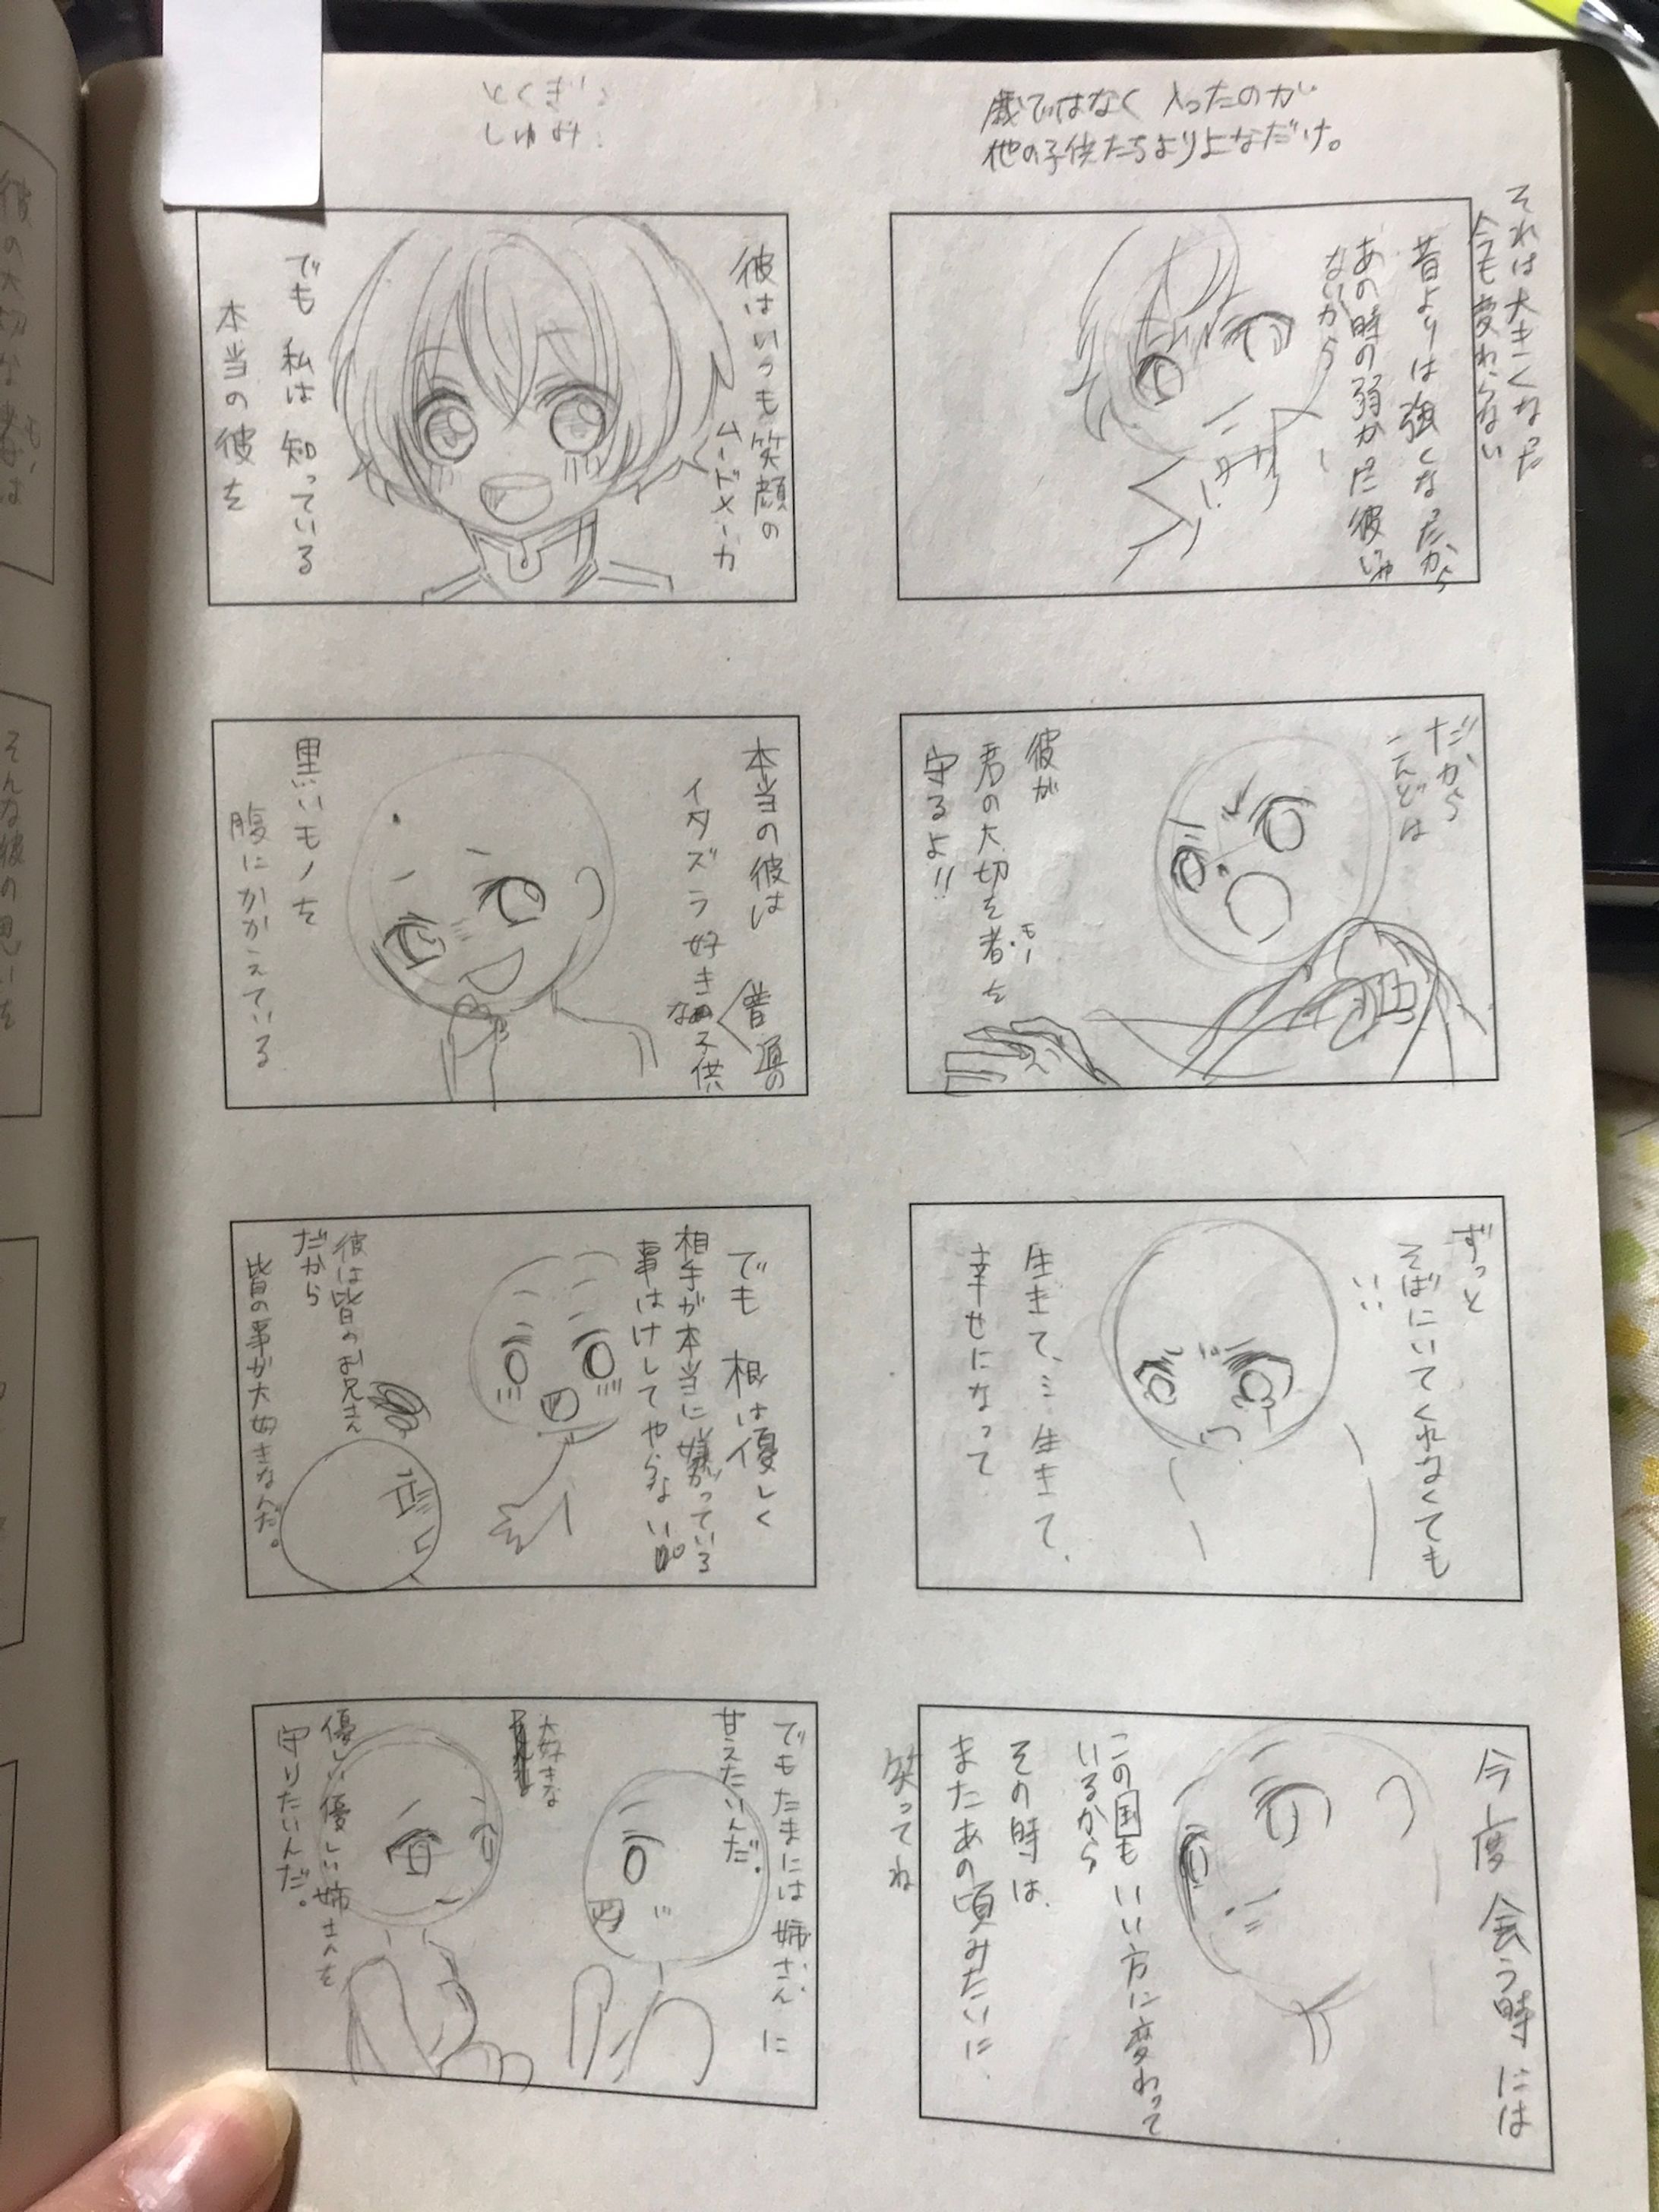 歳ではなく 入ったのが
他の子供たちより上なだけ。
それは大きくなった
今も変わらない
昔よりは強くなったから
あの時の弱かった彼じゃ
ないから
だから
こんどは
彼が
君の大切な者を
もの
守るよ!!
ずっと
そばにいてくれなくても
いい
生きて、… 生きて、
幸せになって
今度 会う時には
この国も いい方に変わって
いるから
その時は、
またあの頃みたいに、
笑ってね
とくぎ:
しゅみ:
彼はいつも笑顔の
ムードメーカ
でも 私は 知っている
本当の彼を
本当の彼は 普通の
イタズラ好きな子供
黒いモノを
腹にかかえている
でも 根は優しく
相手が本当に嫌がっている
事はけしてやらない
彼は皆のお兄さん
だから
皆の事が大好きなんだ。
でもたまには姉さんに
甘えたいんだ。
大好きな
優しい優しい姉さんを
守りたいんだ。
彼の大切な者は
もの
そんな彼の思いを